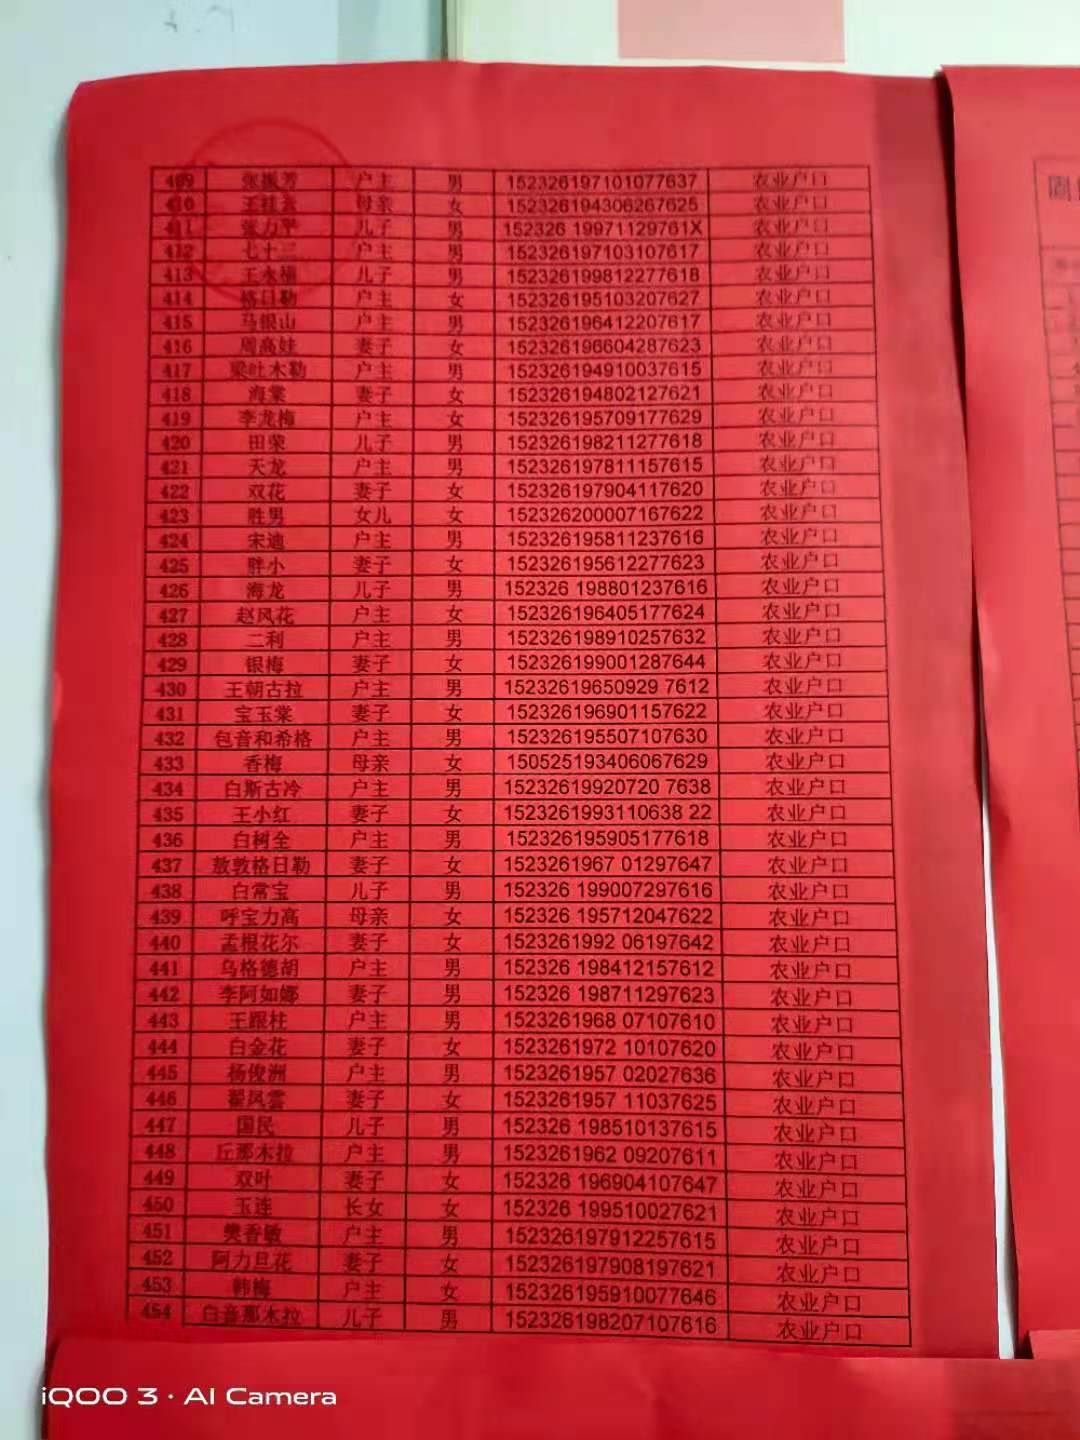 409 张振芳 户主 男 152326197101077637 农业户口
410 王桂云 母亲 女 152326194306267625 农业户口
411 张力平 儿子 男 152326 19971129761X 农业户口
412 七十三 户主 男 152326197103107617 农业户口
413 王永福 儿子 男 152326199812277618 农业户口
414 格日勒 户主 女 152326195103207627 农业户口
415 马银山 户主 男 152326196412207617 农业户口
416 周高娃 妻子 女 152326196604287623 农业户口
417 梁吐木勒 户主 男 152326194910037615 农业户口
418 海棠 妻子 女 152326194802127621 农业户口
419 李龙梅 户主 女 152326195709177629 农业户口
420 田荣 儿子 男 152326198211277618 农业户口
421 天龙 户主 男 152326197811157615 农业户口
422 双花 妻子 女 152326197904117620 农业户口
423 胜男 女儿 女 152326200007167622 农业户口
424 宋迪 户主 男 152326195811237616 农业户口
425 胖小 妻子 女 152326195612277623 农业户口
426 海龙 儿子 男 152326 198801237616 农业户口
427 赵风花 户主 女 152326196405177624 农业户口
428 二利 户主 男 152326198910257632 农业户口
429 银梅 妻子 女 152326199001287644 农业户口
430 王朝古拉 户主 男 15232619650929 7612 农业户口
431 宝玉棠 妻子 女 152326196901157622 农业户口
432 包音和希格 户主 男 152326195507107630 农业户口
433 香梅 母亲 女 150525193406067629 农业户口
434 白斯古冷 户主 男 15232619920720 7638 农业户口
435 王小红 妻子 女 1523261993110638 22 农业户口
436 白树全 户主 男 152326195905177618 农业户口
437 敖敦格日勒 妻子 女 1523261967 01297647 农业户口
438 白常宝 儿子 男 152326 199007297616 农业户口
439 呼宝力高 母亲 女 152326 195712047622 农业户口
440 孟根花尔 妻子 女 1523261992 06197642 农业户口
441 乌格德胡 户主 男 152326 198412157612 农业户口
442 李阿如娜 妻子 男 152326 198711297623 农业户口
443 王跟柱 户主 男 1523261968 07107610 农业户口
444 白金花 妻子 女 1523261972 10107620 农业户口
445 杨俊洲 户主 男 1523261957 02027636 农业户口
446 翟凤雲 妻子 女 1523261957 11037625 农业户口
447 国民 儿子 男 152326 198510137615 农业户口
448 丘那木拉 户主 男 1523261962 09207611 农业户口
449 双叶 妻子 女 152326 196904107647 农业户口
450 玉连 长女 女 152326 199510027621 农业户口
451 樊香敏 户主 男 152326197912257615 农业户口
452 阿力旦花 妻子 女 152326197908197621 农业户口
453 韩梅 户主 女 152326195910077646 农业户口
454 白音那木拉 儿子 男 152326198207107616 农业户口
iQOO 3 · AI Camera